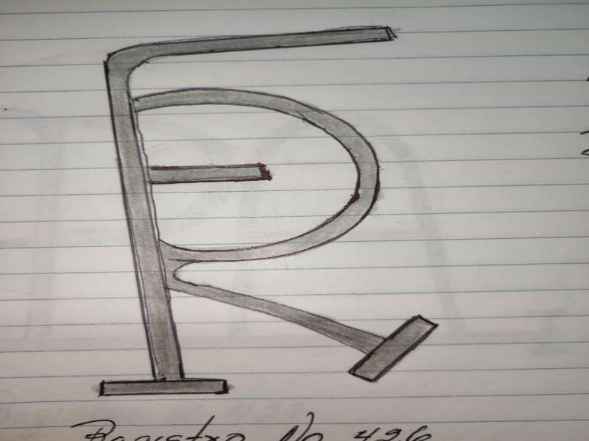 FR
Registro No 426